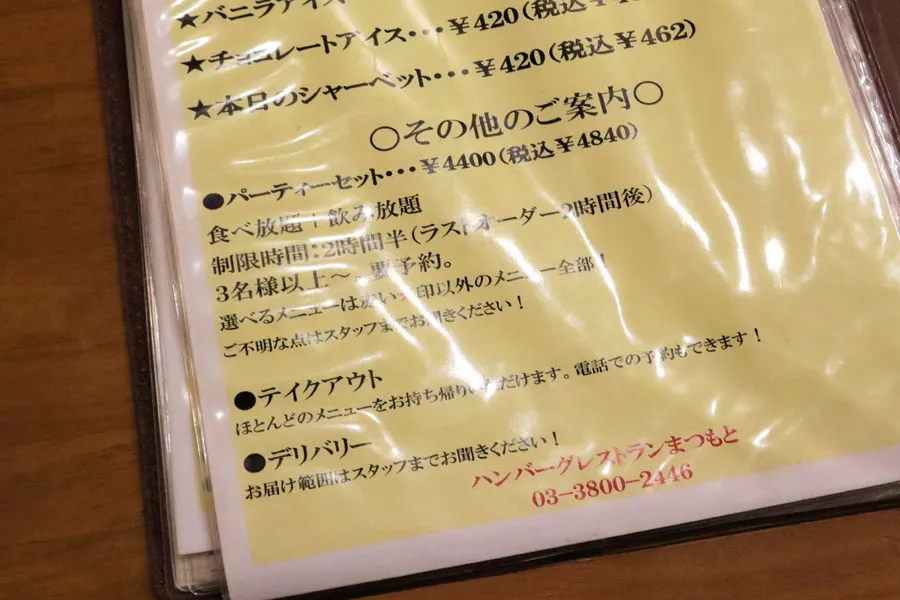 ★バニラアイス
★チョコレートアイス・・・￥420（税込￥4
★本日のシャーベット・・・￥420（税込￥462）
○その他のご案内○
●パーティーセット・・・￥4400（税込￥4840）
食べ放題＋飲み放題
制限時間：2時間半（ラストオーダー2時間後）
3名様以上～ 要予約。
選べるメニューは赤い★印以外のメニュー全部！
ご不明な点はスタッフまでお聞きください！
●テイクアウト
ほとんどのメニューをお持ち帰りいただけます。電話での予約もできます！
●デリバリー
お届け範囲はスタッフまでお聞きください！
ハンバーグレストランまつもと
03−3800−2446